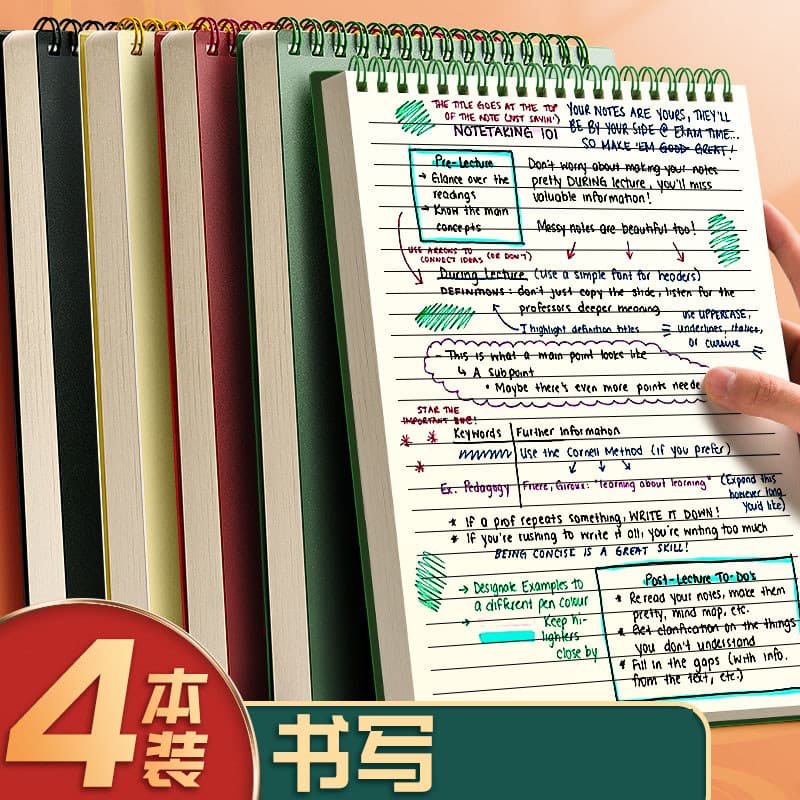 THE TITLE GOES AT THE TOP
OF THE NOTE (JUST SAYIN')
NOTETAKING 101
YOUR NOTES ARE YOURS, THEY'LL
BE BY YOUR SIDE @ EXAM TIME...
SO MAKE 'EM GOOD GREAT!
Pre-Lecture
→ Glance over the
readings
→ Know the main
concepts
Don't worry about making your notes
pretty DURING lecture, you'll miss
valuable information!
Messy notes are beautiful too!
USE ARROWS TO
CONNECT IDEAS (OR DON'T)
During Lecture (use a simple font for headers)
DEFINITIONS: don't just copy the slide, listen for the
professors deeper meaning
I highlight definition titles
use UPPERCASE,
underlines, italics,
or cursive
- This is what a main point looks like
↳ A subpoint
• Maybe there's even more points neede
STAR THE
IMPORTANT ONE!
Keywords
Further Information
Use the Cornell Method (if you prefer)
Ex. Pedagogy
Friere, Giroux: "learning about learning"
(Expand this
however long
you'd like)
* If a prof repeats something, WRITE IT DOWN!
* If you're rushing to write it all, you're writing too much
BEING CONCISE IS A GREAT SKILL!
→ Designate Examples to
a different pen colour
→ Keep hi-
lighters
close by
Post-Lecture To-Do's
* Re read your notes, make them
pretty, mind map, etc.
* Get clarification on the things
you don't understand
* Fill in the gaps (with info.
from the text, etc.)
4本装
书写